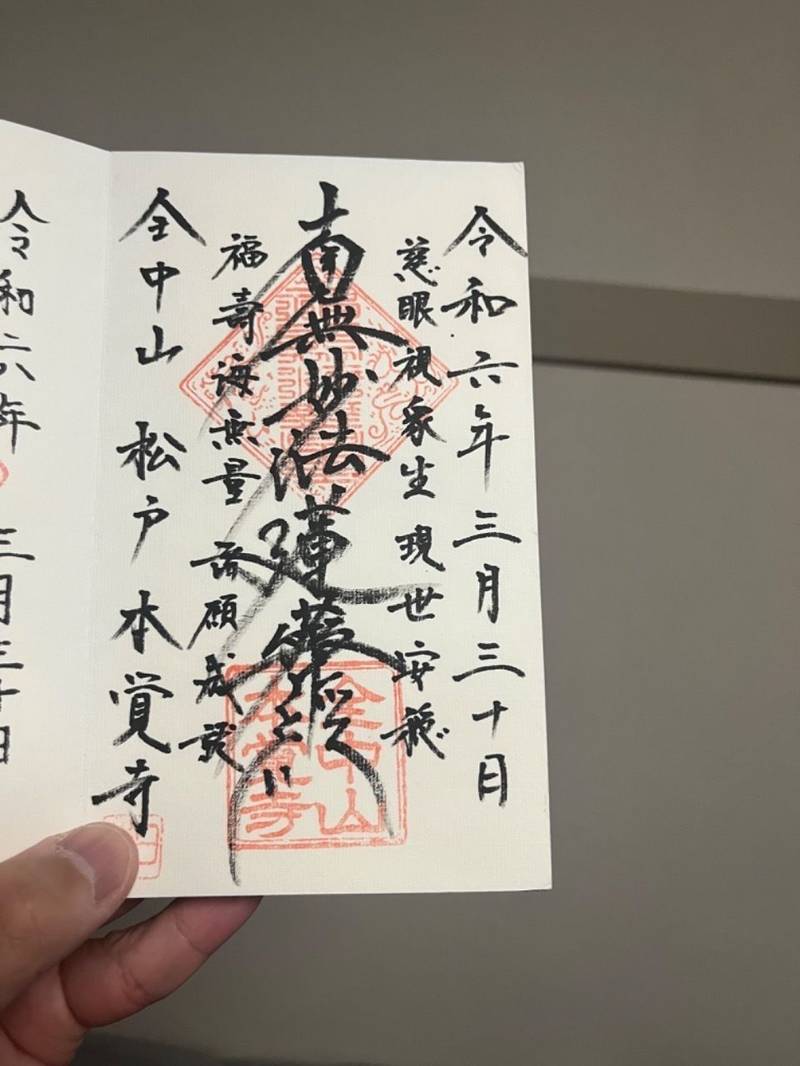 令和六年三月三十日
慈眼視衆生 現世安穏
南無妙法蓮華経
福壽海無量 諸願成就
全中山 松戸 本覚寺
全中山
本覺寺
令和六年 三月三十日